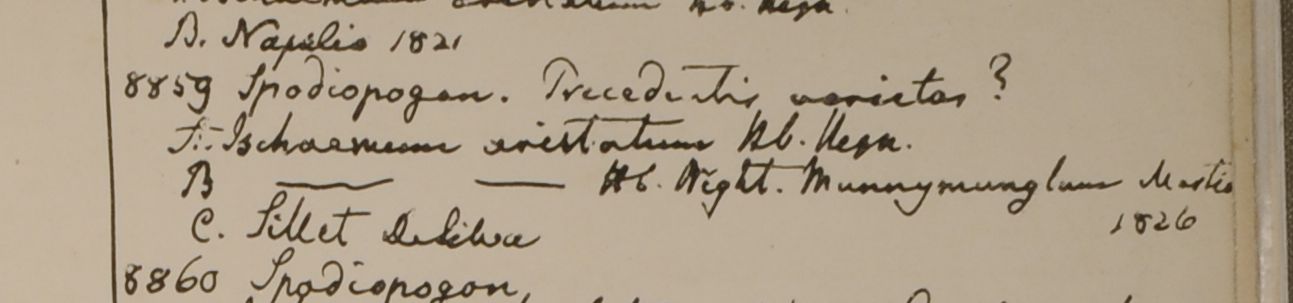 Ischaemum aristatum Hb. Heyn.
B. Napalia 1821
8859 Spodiopogon. Precedentis varietas?
A. Ischaemum aristatum Hb. Heyn.
B — — Hb. Wight. Munnymunglum Martio
1826
C. Sillet De Silva
8860 Spodiopogon,